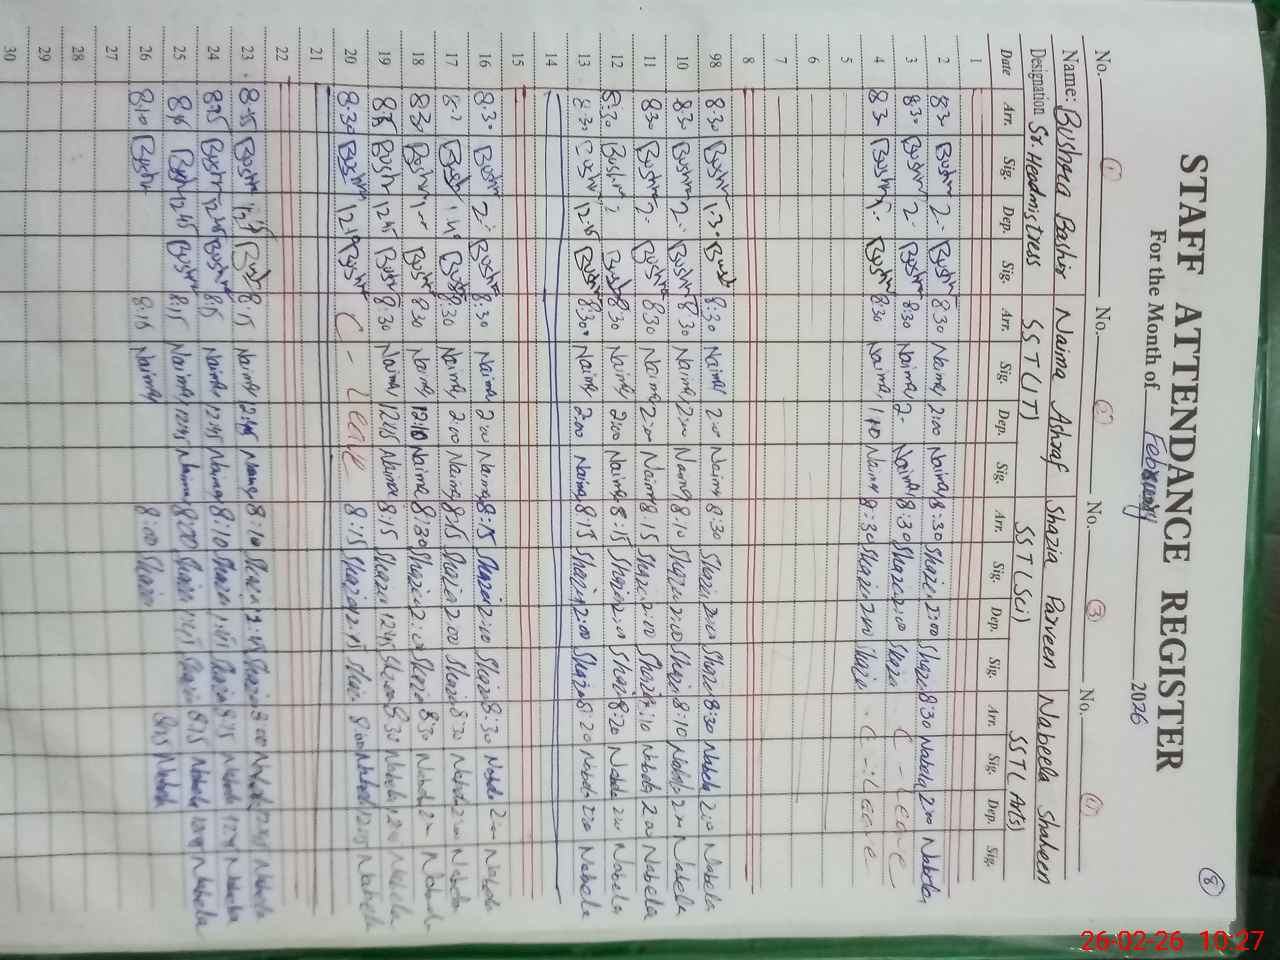 8
STAFF ATTENDANCE REGISTER
For the Month of February 2026
No. 1 No. 2 No. 3 No.
Name: Bushara Bashir Naima Ashraf Shazia Parveen Nabeela Shaheen
Designation Sr. Headmistress SST(IT) SST(Sci) SST(Arts)
Date Arr. Sig. Dep. Sig. Arr. Sig. Dep. Sig. Arr. Sig. Dep. Sig. Arr. Sig. Dep. Sig.
1
2 8:30 Bushra 2 Bushra 8:30 Naima 2:00 Naima 8:30 Shazia 2:00 Shazia 8:30 Nabeela 2:00 Nabeela
3 8:30 Bushra 2 Bushra 8:30 Naima 2 Naima 8:30 Shazia 2:00 Shazia C - Leave
4 8:30 Bushra Bushra 8:30 Naima 1:10 Naima 8:30 Shazia 2:00 Shazia C - Leave
5
6
7
8
9 8:30 Bushra 1:30 Bushra 8:30 Naima 2:00 Naima 8:30 Shazia 2:00 Shazia 8:30 Nabeela 2:00 Nabeela
10 8:30 Bushra 2 Bushra 8:30 Naima 2:00 Naima 8:10 Shazia 2:00 Shazia 8:10 Nabeela 2:00 Nabeela
11 8:30 Bushra 2 Bushra 8:30 Naima 2:00 Naima 8:15 Shazia 2:00 Shazia 8:10 Nabeela 2:00 Nabeela
12 8:30 Bushra 2 Bushra 8:30 Naima 2:00 Naima 8:15 Shazia 2:00 Shazia 8:20 Nabeela 2:00 Nabeela
13 8:30 Bushra 12:15 Bushra 8:30 Naima 2:00 Naima 8:15 Shazia 2:00 Shazia 8:20 Nabeela 2:00 Nabeela
14
15
16 8:30 Bushra 2 Bushra 8:30 Naima 2:00 Naima 8:15 Shazia 2:00 Shazia 8:30 Nabeela 2:00 Nabeela
17 Bushra Bushra 8:30 Naima 2:00 Naima 8:15 Shazia 2:00 Shazia 8:30 Nabeela 2:00 Nabeela
18 8:30 Bushra Bushra 8:30 Naima 12:10 Naima 8:30 Shazia 2:00 Shazia 8:30 Nabeela Nabeela
19 Bushra 12:45 Bushra 8:30 Naima 12:45 Naima 8:15 Shazia 12:45 Shazia 8:30 Nabeela Nabeela
20 8:30 Bushra Bushra C - Leave 8:15 Shazia 12:15 Shazia 8:00 Nabeela 12:15 Nabeela
21
22
23 8:15 Bushra Bushra 8:15 Naima 12:45 Naima 8:10 Shazia 12:45 Shazia Nabeela Nabeela
24 Bushra 12:45 Bushra 8:15 Naima 12:45 Naima 8:10 Shazia Shazia 8:15 Nabeela Nabeela
25 Bushra 12:45 Bushra 8:15 Naima 12:45 Naima 8:00 Shazia Shazia 8:15 Nabeela Nabeela
26 8:10 Bushra 8:15 Naima 8:00 Shazia 8:15 Nabeela
27
28
29
30
26-02-26 10:27